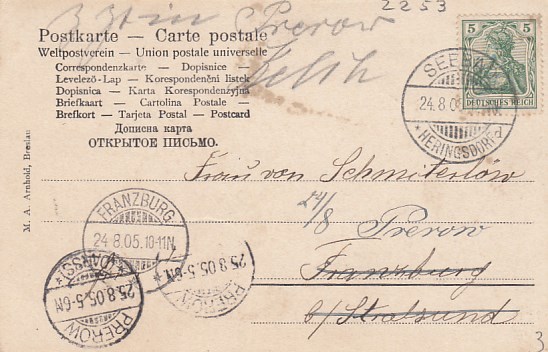 2253
3 in Prerow
Postkarte — Carte postale
Weltpostverein — Union postale universelle
Correspondenzkarte — Dopisnice
Levelező-Lap — Korespondenční lístek
Dopisnica — Karta Korespondencyjna
Briefkaart — Cartolina Postale —
Brefkort — Tarjeta Postal — Postcard
Дописна карта
ОТКРЫТОЕ ПИСЬМО.
5 5
DEUTSCHES REICH
SEEBAD
24.8.05
* HERINGSDORF d
M. A. Arnhold, Breslau
Frau von Schmiterlöw
24/8
Prerow
Franzburg
b/Stralsund
FRANZBURG
24 8.05.10-11N.
* (DARSS) *
25.8.05.5-6N
PREROW
25.8.05.5-6N
PREROW
3